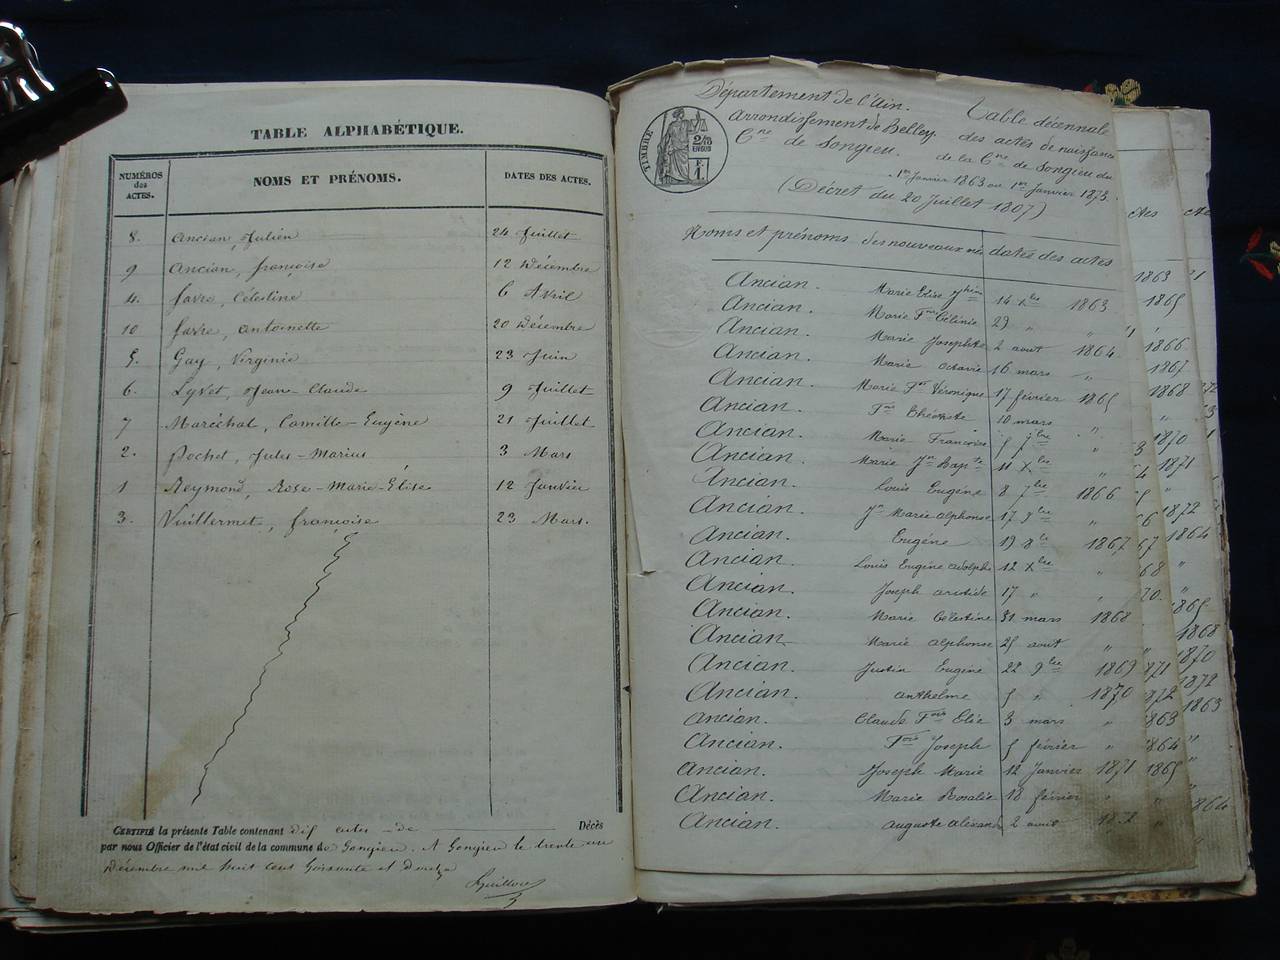 TABLE ALPHABÉTIQUE.
NUMÉROS des ACTES. NOMS ET PRÉNOMS. DATES DES ACTES.
8. Ancian, Julien 24 Juillet
9 Ancian, françoise 12 Décembre
4. favre, Célestine 6 Avril
10 favre, antoinette 20 Décembre
5. Gay, Virginie 23 Juin
6. Lyvet, Jean-Claude 9 Juillet
7 Maréchal, Camille-Eugène 21 Juillet
2. Pochet, Jules-Marius 3 Mars
1 Reymond, Rose-Marie-Élise 12 Janvier
3. Vuillermet, françoise 23 Mars.
CERTIFIÉ la présente Table contenant dix actes de Décès
par nous Officier de l'état civil de la commune de Songieu. A Songieu le trente un
Décembre mil huit cent soixante et douze
Département de l'Ain.
Arrondissement de Belley
Cne de Songieu.
TIMBRE
2/10
EN SUS
F.
1.
Table décennale
des actes de naissance
de la Cne de Songieu du
1er Janvier 1863 au 1er Janvier 1873.
(Décret du 20 Juillet 1807)
Noms et prénoms des nouveaux nés dates des actes
Ancian. Marie Elise 14 Xbre 1863
Ancian. Marie Fse Célinie 29 "
Ancian. Marie Josephte 2 aout 1864
Ancian. Marie octavie 16 mars "
Ancian. Marie Fse Véronique 17 février 1865
Ancian. 10 mars "
Ancian. Marie Françoise 5 7bre "
Ancian. Marie Jn Bapte 11 Xbre "
Ancian. Louis Eugène 8 7bre 1866
Ancian. Jn Marie alphonse 17 9bre "
Ancian. Eugène 19 8bre 1867
Ancian. Louis Eugène adolphe 12 Xbre "
Ancian. Joseph aristide 17 " "
Ancian. Marie Célestine 31 mars 1868
Ancian. Marie alphonse 25 aout "
Ancian. Justin Eugène 22 9bre 1869
Ancian. anthelme 5 " 1870
Ancian. Claude Fois Elie 3 mars "
Ancian. Fois Joseph 5 février "
Ancian. Joseph Marie 12 Janvier 1871
Ancian. Marie Rosalie 18 février "
Ancian. auguste alexand 2 avril 1872